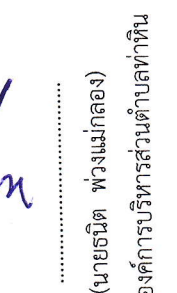 (นายธนิต พ่วงแม่กลอง)
องค์การบริหารส่วนตำบลท่าหิน